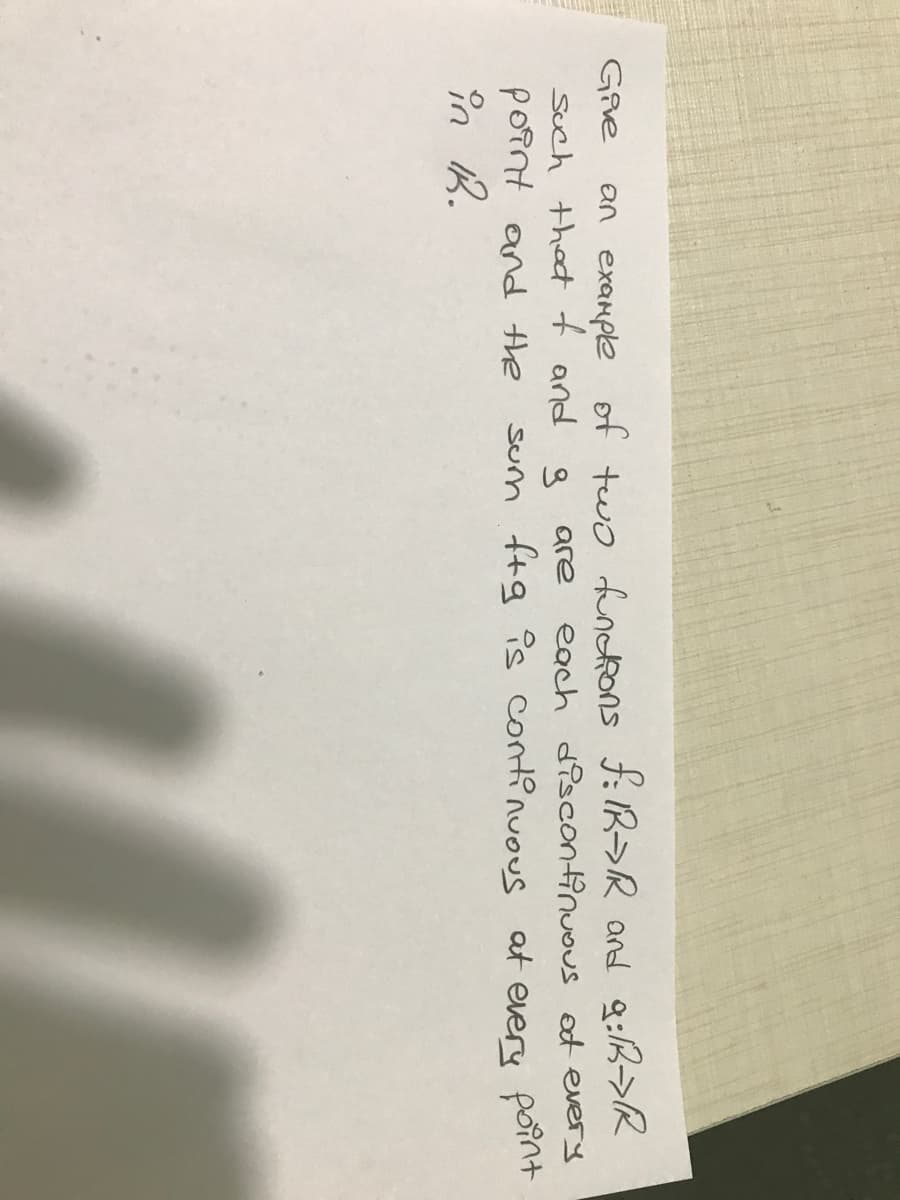 Give an example of two functions f: ℝ→ℝ and g: ℝ→ℝ
such that f and g are each discontinuous at every
point and the sum f+g is continuous at every point
in ℝ.